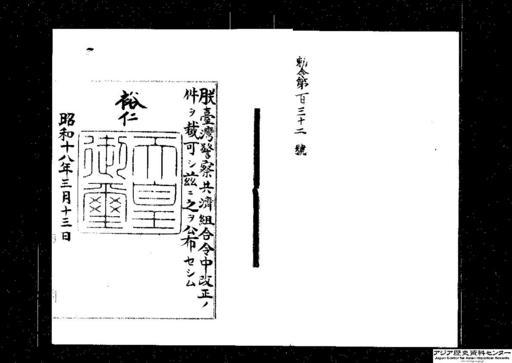 勅令第百三十二號
朕臺灣警察共濟組合令中改正ノ
件ヲ裁可シ茲ニ之ヲ公布セシム
裕仁
天皇
御璽
昭和十八年三月十三日
アジア歴史資料センター
Japan Center for Asian Historical Records